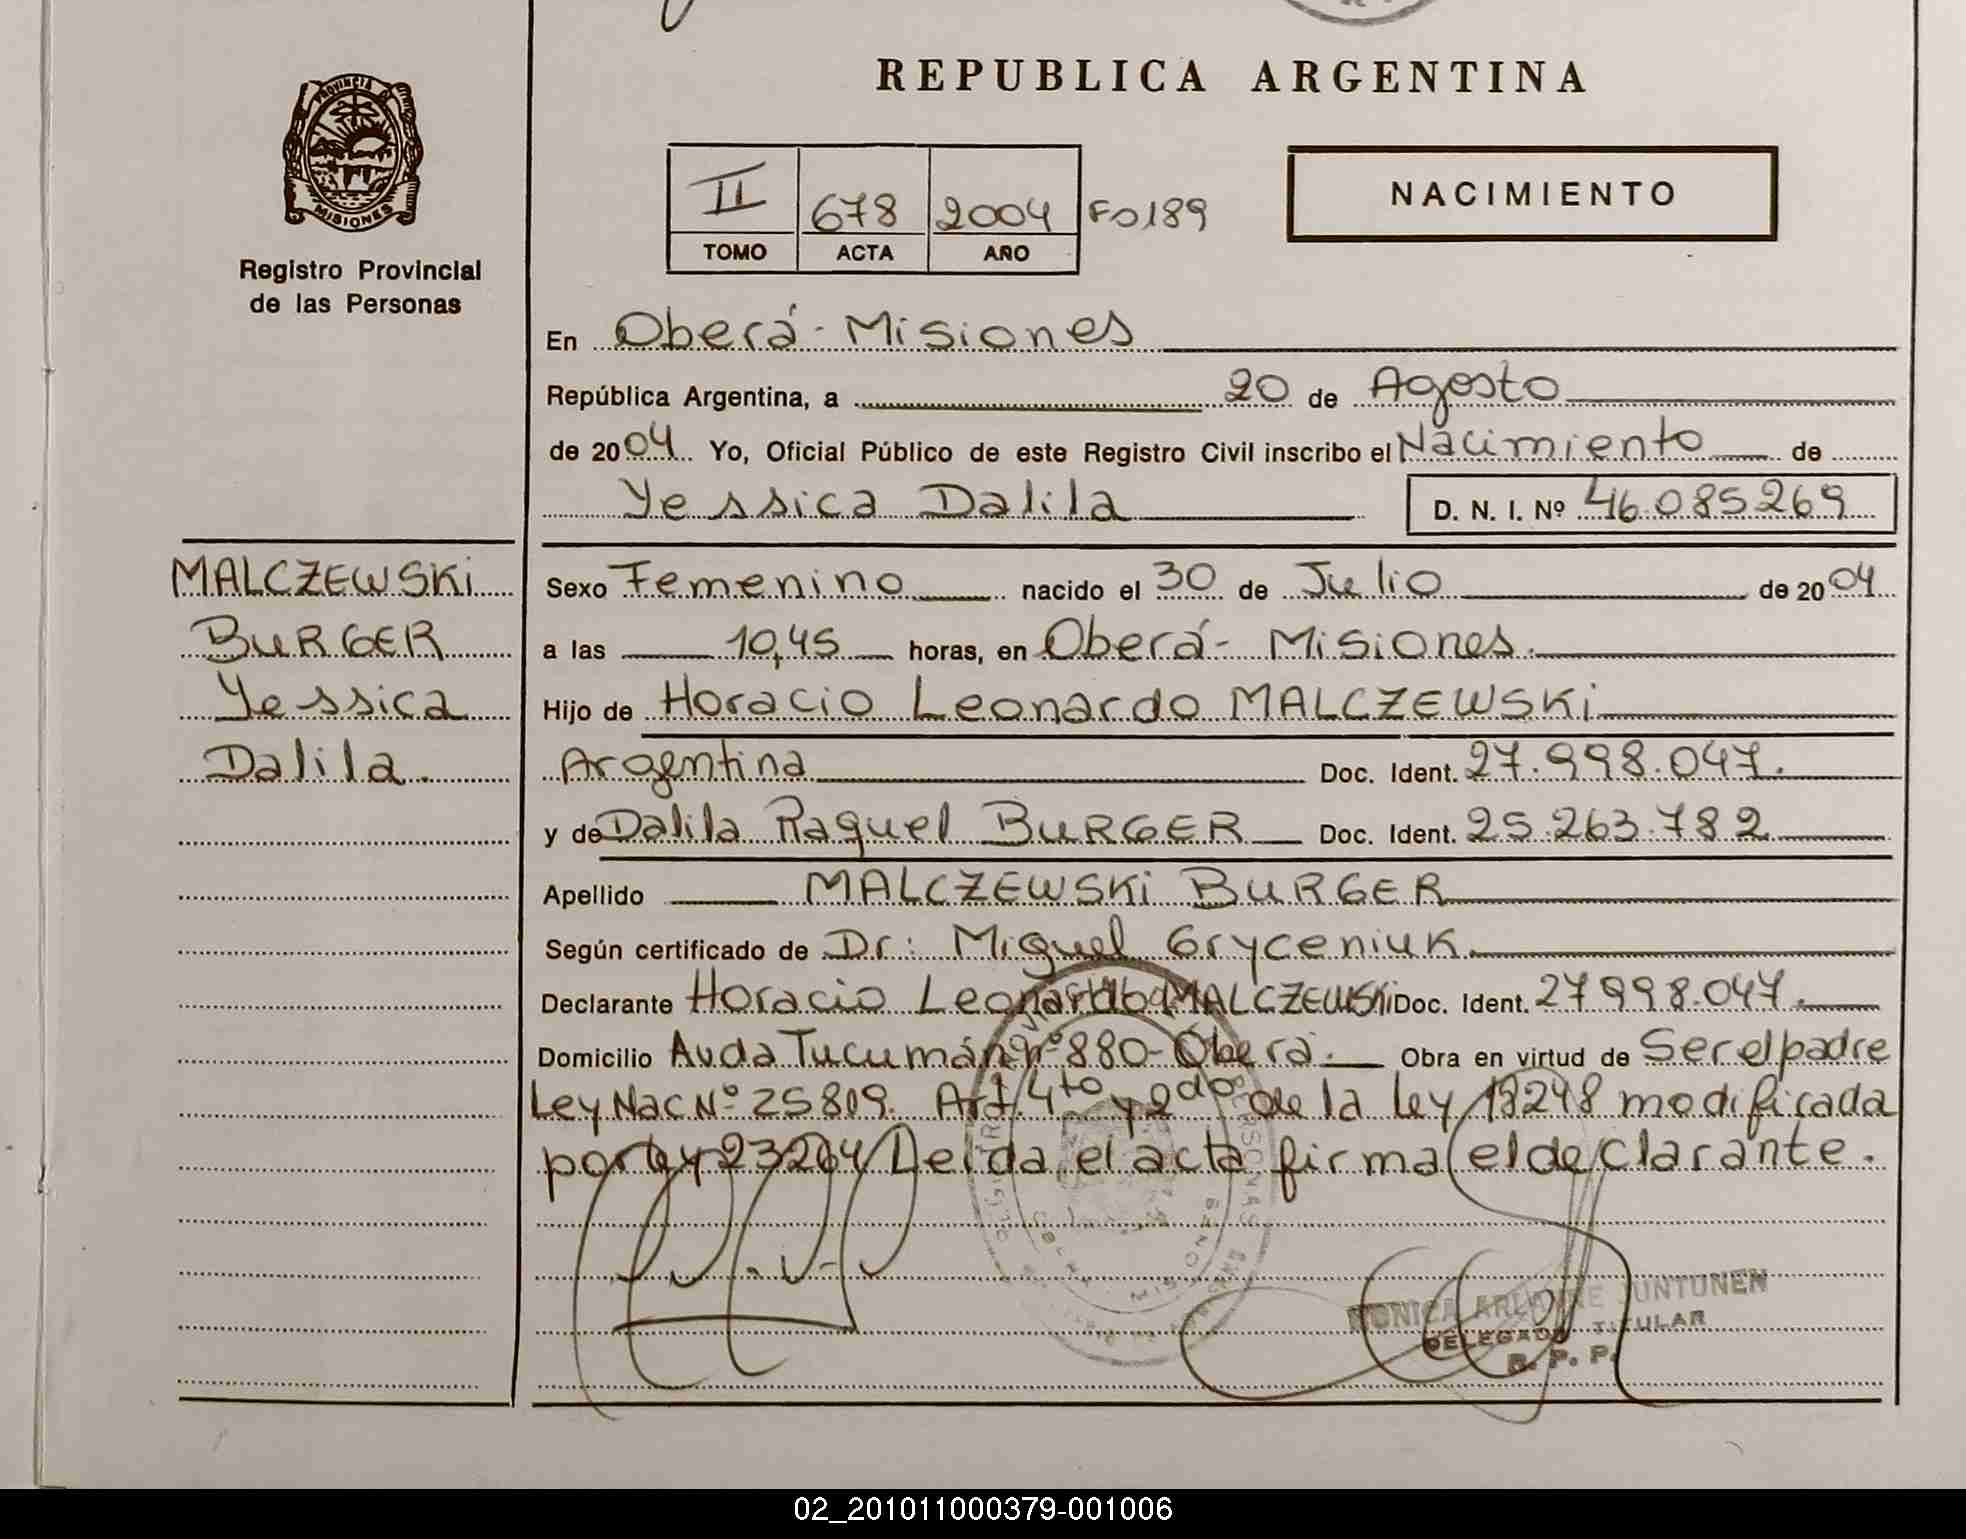 REPUBLICA ARGENTINA
PROVINCIA DE
MISIONES
Registro Provincial
de las Personas
II 678 2004 Fo189
TOMO ACTA AÑO
NACIMIENTO
En Oberá - Misiones
República Argentina, a 20 de Agosto
de 2004 Yo, Oficial Público de este Registro Civil inscribo el Nacimiento de
Yessica Dalila D. N. I. Nº 46.085269
MALCZEWSKi
BURGER
Yessica
Dalila.
Sexo Femenino nacido el 30 de Julio de 2004
a las 10,45 horas, en Oberá - Misiones.
Hijo de Horacio Leonardo MALCZEWSKi
Argentina Doc. Ident. 27.998.047.
y de Dalila Raquel BURGER Doc. Ident. 25.263.782
Apellido MALCZEWSKi BURGER
Según certificado de Dr: Miguel Gryceniuk.
Declarante Horacio Leonardo MALCZEWSKi Doc. Ident. 27998.047.
Domicilio Avda Tucumán nº 880 - Oberá. Obra en virtud de Ser el padre
Ley Nac Nº 25809. Art. 4to y 2do de la ley 18248 modificada
por ley 23264 Leida el acta firma el declarante.
MONICA ARLANNE JUNTUNEN
DELEGADO TITULAR
R. P. P.
02_201011000379-001006